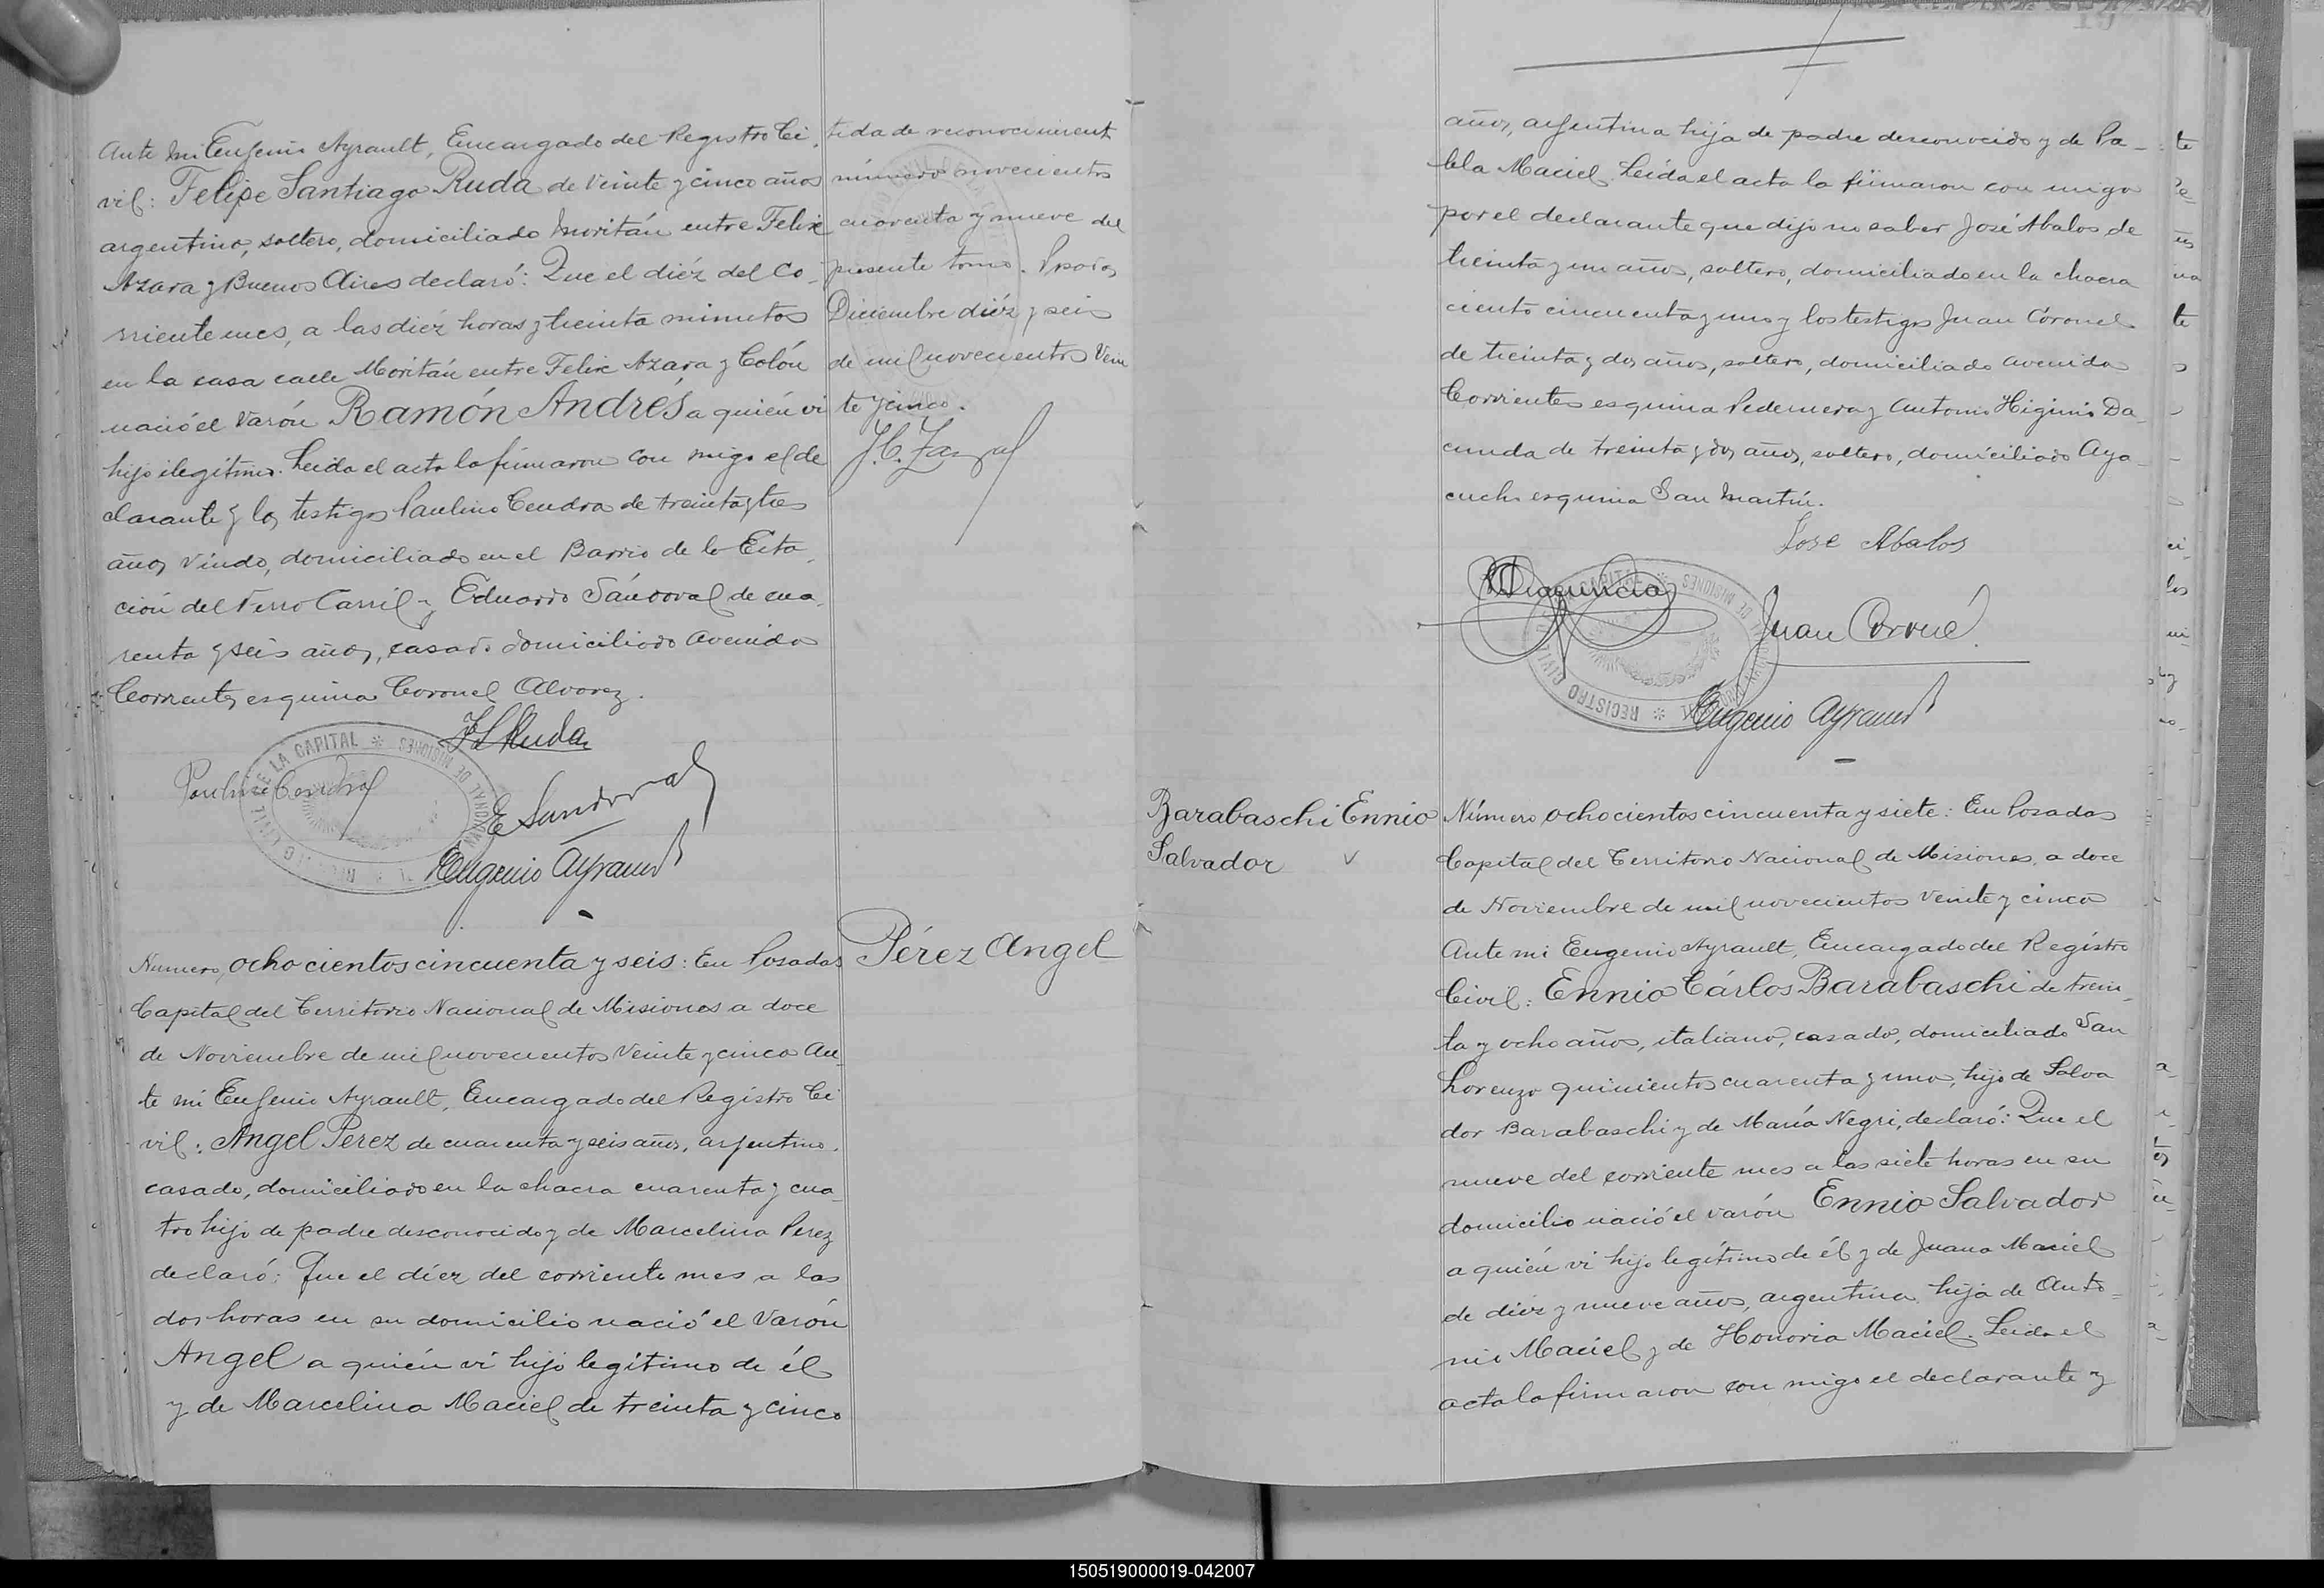 Ante mi Eugenio Ayrault, Encargado del Registro Ci-
vil: Felipe Santiago Ruda de veinte y cinco años
argentino, soltero, domiciliado Moritán entre Felix
Azara y Buenos Aires declaró: Que el diéz del co-
rriente mes, a las diéz horas y treinta minutos
en la casa calle Moritán entre Felix Azara y Colón
nació el varón Ramón Andrés a quién vi
hijo ilegítimo. Leida el acta la firmaron con migo el de
clarante y los testigos Paulino Cendra de treinta y tres
años viudo, domiciliado en el Barrio de la Esta-
ción del Ferro Carril y Eduardo Sándoval de cua-
renta y seis años, casado domiciliado Avenida
Corrientes esquina Coronel Alvarez.
F S Ruda
Paulino Cendra
E Sandoval
Eugenio Ayrault
REGISTRO CIVIL DE LA CAPITAL * DE MISIONES
tida de reconocimient
número novecientos
cuarenta y nueve del
presente tomo. Posadas
Diciembre diéz y seis
de mil novecientos vein
te y cinco.
Número, ochocientos cincuenta y seis: En Posadas
Capital del Territorio Nacional de Misiones a doce
de Noviembre de mil novecientos veinte y cinco An-
te mi Eugenio Ayrault, Encargado del Registro Ci
vil: Angel Perez de cuarenta y seis años, argentino.
casado, domiciliado en la chacra cuarenta y cua-
tro hijo de padre desconocido y de Marcelina Perez
declaró: Que el diez del corriente mes a las
dos horas en su domicilio nació el varón
Angel a quién vi hijo legítimo de él
y de Marcelina Maciel de treinta y cinco
Pérez Angel
años, argentina hija de padre desconocido y de Pa-
bla Maciel. Leida el acta la firmaron con migo
por el declarante que dijo no saber José Abalos de
treinta y un años, soltero, domiciliado en la chacra
ciento cincuenta y uno y los testigos Juan Córonel
de treinta y dos años, soltero, domiciliado avenida
Corrientes esquina Pedernera y Antonio Higinio Da-
cunda de treinta y dos años, soltero, domiciliado Aya-
cucho esquina San Martín.
José Abalos
Juan Coronel
REGISTRO CIVIL DE LA CAPITAL * DE MISIONES
Eugenio Ayrault
Barabaschi Ennio
Salvador
Número ochocientos cincuenta y siete: En Posadas
Capital del Territorio Nacional de Misiones, a doce
de Noviembre de mil novecientos veinte y cinco
Ante mi Eugenio Ayrault, Encargado del Registro
Civil: Ennio Cárlos Barabaschi de trein-
ta y ocho años, italiano, casado, domiciliado San
Lorenzo quinientos cuarenta y uno, hijo de Salva
dor Barabaschi y de María Negri, declaró: Que el
nueve del corriente mes a las siete horas en su
domicilio nació el varón Ennio Salvador
a quién vi hijo legítimo de él y de Juana Maciel
de diez y nueve años, argentina, hija de Anto-
nio Maciel y de Honoria Maciel. Leida el
acta la firmaron con migo el declarante y
150519000019-042007